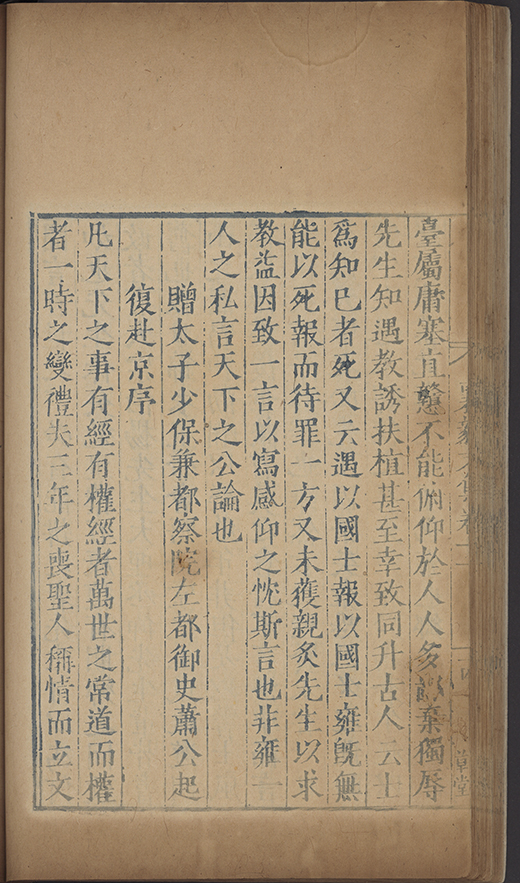 臺屬庸塞直戇不能俯仰於人人多棄獨辱
先生知遇教誘扶植甚至幸致同升古人云士
爲知已者死又云遇以國士報以國士雍旣無
能以死報而待罪一方又未獲親炙先生以求
教益因致一言以寫感仰之忱斯言也非雍一
人之私言天下之公論也
贈太子少保兼都察院左都御史蕭公起
復赴京序
凡天下之事有經有權經者萬世之常道而權
者一時之變禮夫三年之喪聖人稱情而立文
草堂